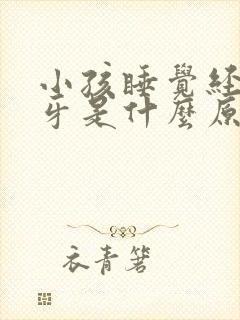 小孩睡覺経
牙是什麼原
衣青箬